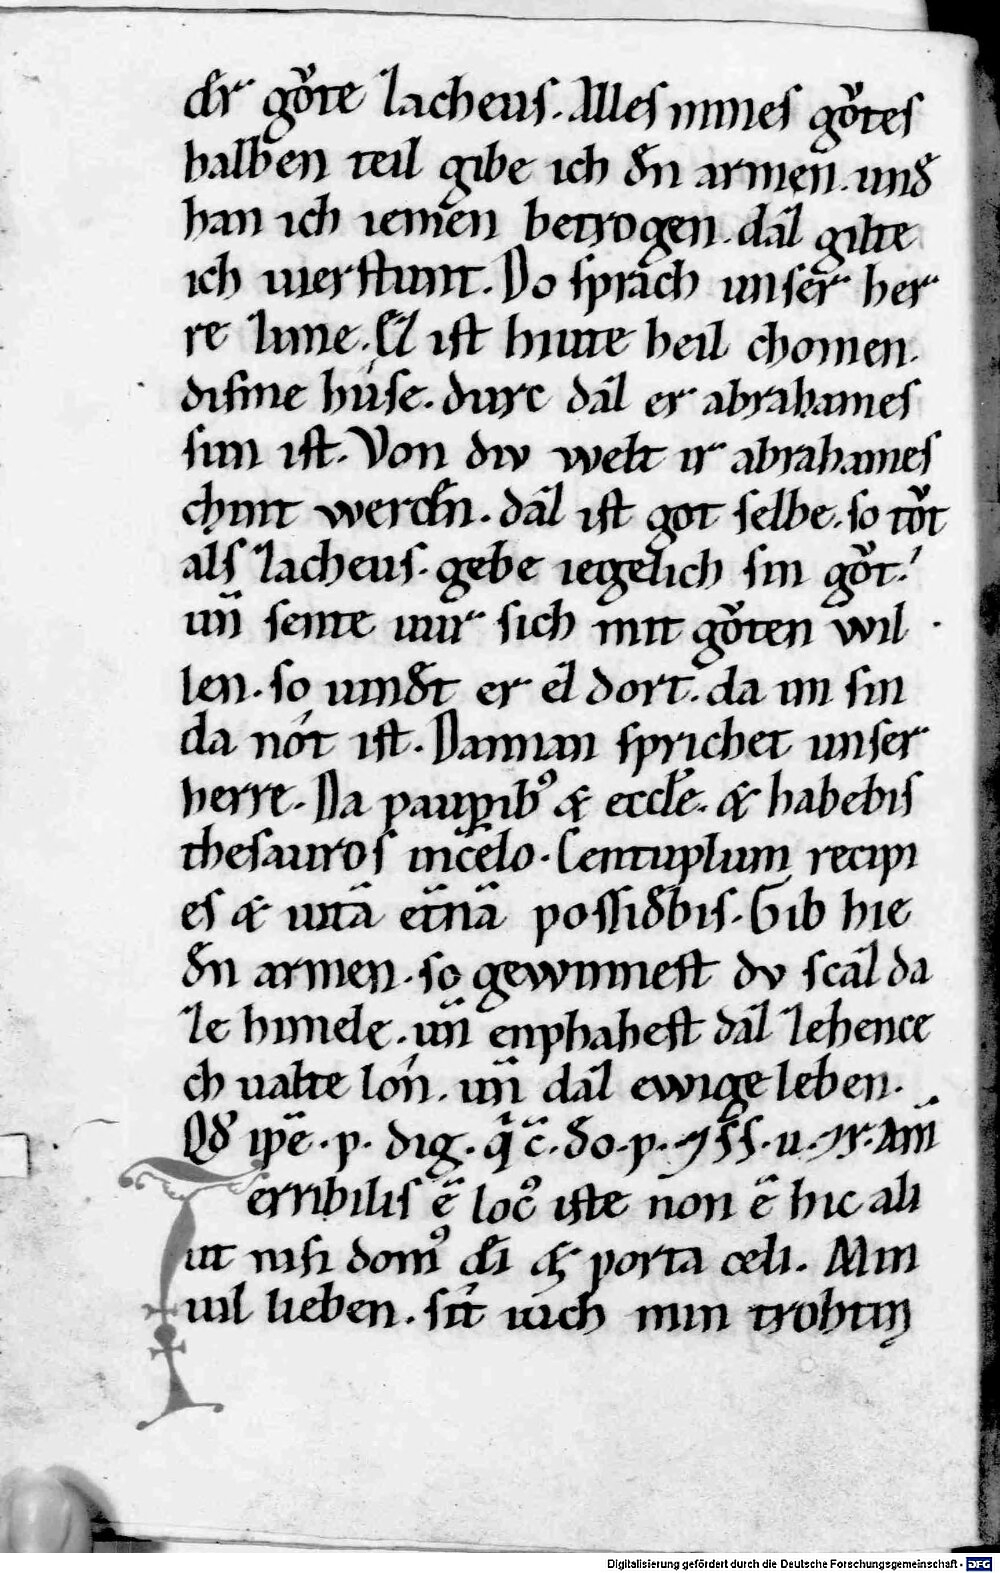 der gůte zacheus. Alles mines gůtes
halben teil gibe ich den armen. und
han ich iemen betrogen. daz gilte
ich uierstunt. Do sprach unser her
re zime. Ez ist hiute heil chomen.
disme húse. durc daz er abrahames
sun ist. Von div welt ir abrahames
chint werden. daz ist got selbe. so tůt
als zacheus. gebe iegelich sin gůt.
uñ sente uúr sich mit gůten wil
len. so uindet er ez dort. da im sin
da nót ist. Dannan sprichet unser
herre. Da paupib⁹ & eccle. & habebis
thesauros incelo. Centuplum recipi
es & uitā etnā possidebis. Gib hie
den armen. so gewinnest dv scaz da
ze himele. uñ enphahest daz zehence
ch ualte lón. uñ daz ewige leben.
Qđ ipē. p. dig. q̄ c̄. do. p. ⁊ ss. u. ⁊ r. Am̄
Terribilis ē loc⁹ iste non ē hic ali
ut nisi dom⁹ dei & porta celi. Min
uil lieben. sit iuich min trohtin